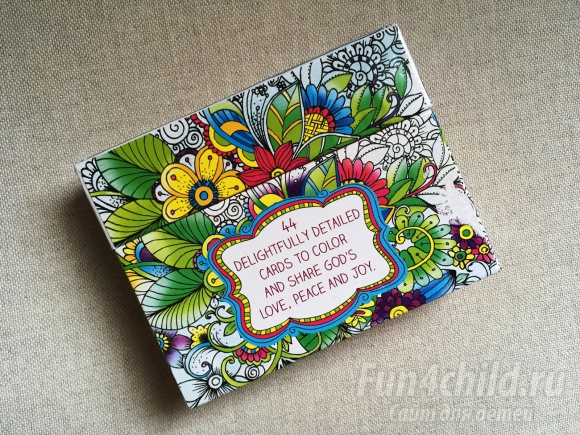 44
DELIGHTFULLY DETAILED
CARDS TO COLOR
AND SHARE GOD'S
LOVE, PEACE AND JOY.
Fun4child.ru
Сайт для детей